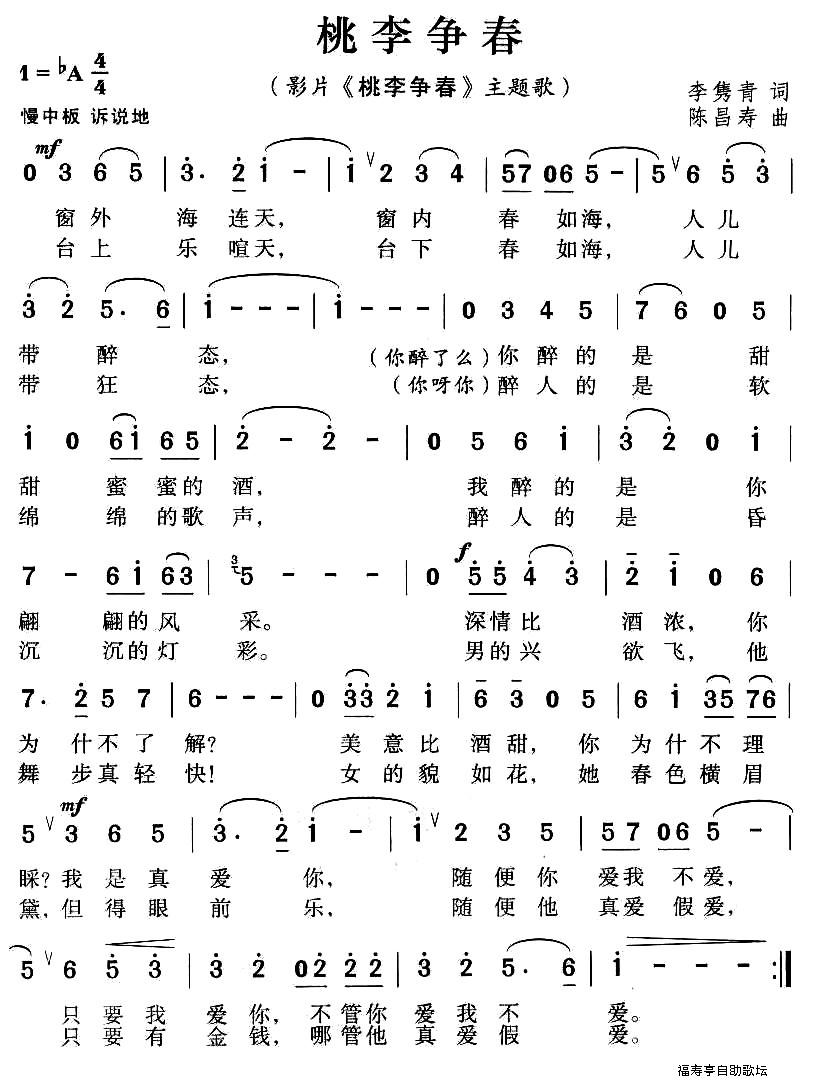 桃李争春
1=♭A 4/4
(影片《桃李争春》主题歌)
李隽青 词
慢中板 诉说地
陈昌寿 曲
mf
0 3 6 5 | 3̇. 2̇ 1̇ - | 1̇ ∨ 2 3 4 | 57 06 5 - | 5 ∨ 6 5̇ 3̇ |
窗外 海连天, 窗内 春如海, 人儿
台上 乐喧天, 台下 春如海, 人儿
3̇ 2̇ 5. 6 | 1̇ - - - | 1̇ - - - | 0 3 4 5 | 7 6 0 5 |
带醉态, (你醉了么)你醉的是甜
带狂态, (你呀你)醉人的是软
1̇ 0 61̇ 65 | 2̇ - 2̇ - | 0 5 6 1̇ | 3̇ 2̇ 0 1̇ |
甜蜜蜜的酒, 我醉的是你
绵绵的歌声, 醉人的是昏
f
7 - 61̇ 63 | 5 - - - | 0 5̇5̇ 4̇ 3̇ | 2̇ 1̇ 0 6 |
翩翩的风采。 深情比酒浓, 你
沉沉的灯彩。 男的兴欲飞, 他
7. 2̇ 5 7 | 6 - - - | 0 3̇3̇ 2̇ 1̇ | 6 3 0 5 | 6 1̇ 35 76 |
为什不了解? 美意比酒甜, 你为什不理
舞步真轻快! 女的貌如花, 她春色横眉
mf
5 ∨ 3 6 5 | 3̇. 2̇ 1̇ - | 1̇ ∨ 2 3 5 | 57 06 5 - |
睬?我是真爱你, 随便你爱我不爱,
黛,但得眼前乐, 随便他真爱假爱,
5 ∨ 6 5̇ 3̇ | 3̇ 2̇ 02̇ 2̇2̇ | 3̇ 2̇ 5. 6 | 1̇ - - - :||
只要我爱你,不管你爱我不爱。
只要有金钱,哪管他真爱假爱。
福寿亭自助歌坛